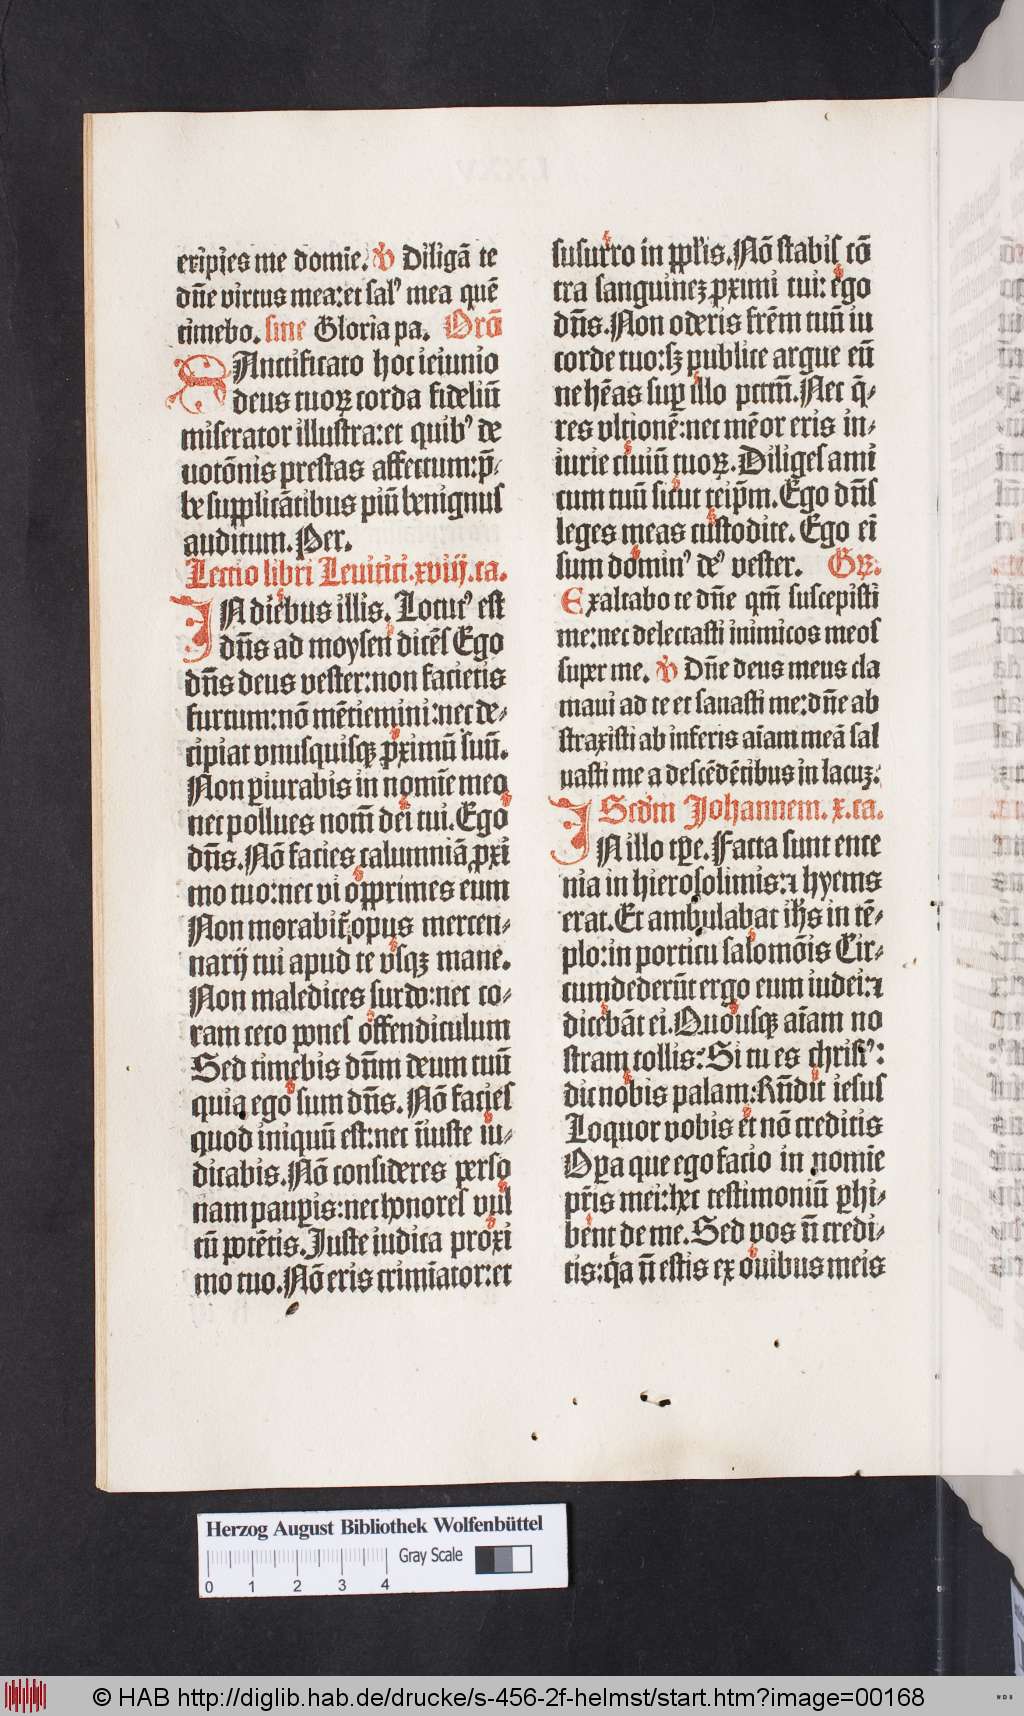 eripies me domīe. ℣ Diligā te
dn̄e virtus mea: et salꝰ mea quē
timebo. sine Gloria pa. Orō
SAnctificato hoc ieiunio
deus tuoꝝ corda fideliū
miserator illustra: et quibꝰ de
uotōnis prestas affectum: p̄-
be supplicātibus piū benignus
auditum. Per.
Lectio libri Leuitici. xviij. ca.
IN diebus illis. Locutꝰ est
dn̄s ad moysen dicēs Ego
dn̄s deus vester: non facietis
furtum: nō mētiemini: nec de-
cipiat vnusquisqꝫ ꝓximū suū.
Non ꝑiurabis in nomīe meo
nec pollues nom̄ dei tui. Ego
dn̄s. Nō facies calumniā ꝓxi
mo tuo: nec vi opprimes eum
Non morabit̄ opus mercen-
narij tui apud te vsqꝫ mane.
Non maledices surdo: nec co-
ram ceco pones offendiculum
Sed timebis dn̄m deum tuū
quia ego sum dn̄s. Nō facies
quod iniquū est: nec īiuste iu-
dicabis. Nō consideres perso
nam pauꝑis: nec honores vul
tū potētis. Juste iudica proxi
mo tuo. Nō eris crimīator: et
susurro in ppl̄is. Nō stabis cō
tra sanguineꝫ ꝓximi tui: ego
dn̄s. Non oderis frēm tuū in
corde tuo: sꝫ publice argue eū
ne hēas suꝑ illo pctm̄. Nec q̄-
res vltionē: nec mēor eris in-
iurie ciuiū tuoꝝ. Diliges ami
cum tuū sicut teip̄m. Ego dn̄s
leges meas custodite. Ego ei
sum dominꝰ deꝰ vester. Gꝝ.
Exaltabo te dn̄e qm̄ suscepisti
me: nec delectasti inimicos meos
super me. ℣ Dn̄e deus meus cla
maui ad te et sanasti me: dn̄e ab
straxisti ab inferis aīam meā sal
uasti me a descēdētibus in lacuꝫ.
Scd̄m Johannem. x. ca.
IN illo tꝑe. Facta sunt ence
nia in hierosolimis: ⁊ hyems
erat. Et ambulabat ih̄s in tē-
plo: in porticu salomōis Cir-
cumdederūt ergo eum iudei: ⁊
dicebāt ei. Quousqꝫ aīam no
stram tollis? Si tu es christꝰ:
dic nobis palam: Rn̄dit iesus
Loquor vobis et nō creditis
Oꝑa que ego facio in nomīe
pr̄is mei: hec testimoniū ꝑhi-
bent de me. Sed vos n̄ credi-
tis: q̄a n̄ estis ex ouibus meis
Herzog August Bibliothek Wolfenbüttel
0 1 2 3 4 Gray Scale
© HAB http://diglib.hab.de/drucke/s-456-2f-helmst/start.htm?image=00168